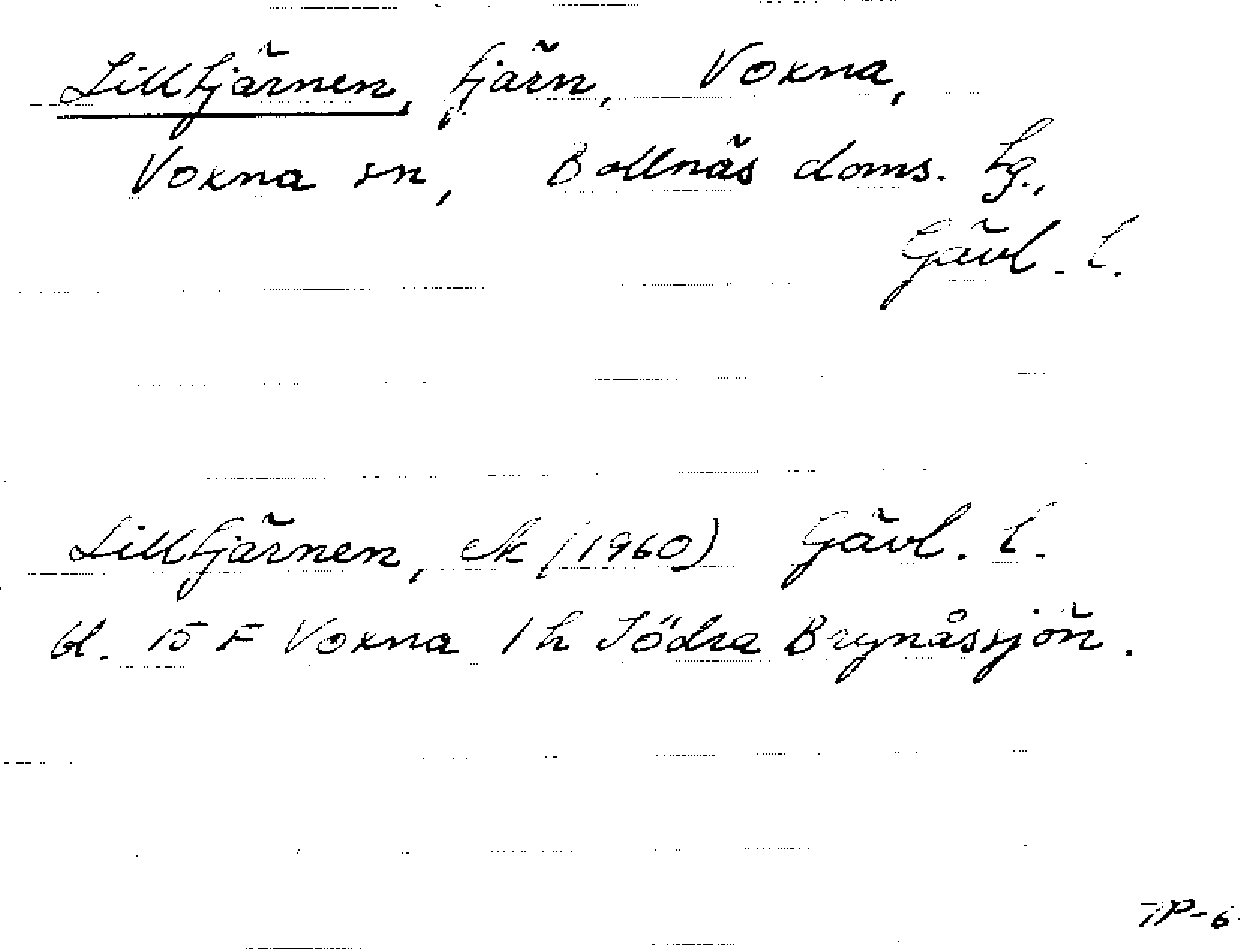 Lilltjärnen, tjärn, Voxna,
Voxna sn, Bollnäs doms. tg.,
Gävl. l.
Lilltjärnen, ek (1960) Gävl. l.
bl. 15 F Voxna 1 h Södra Brynåssjön.
TP-6